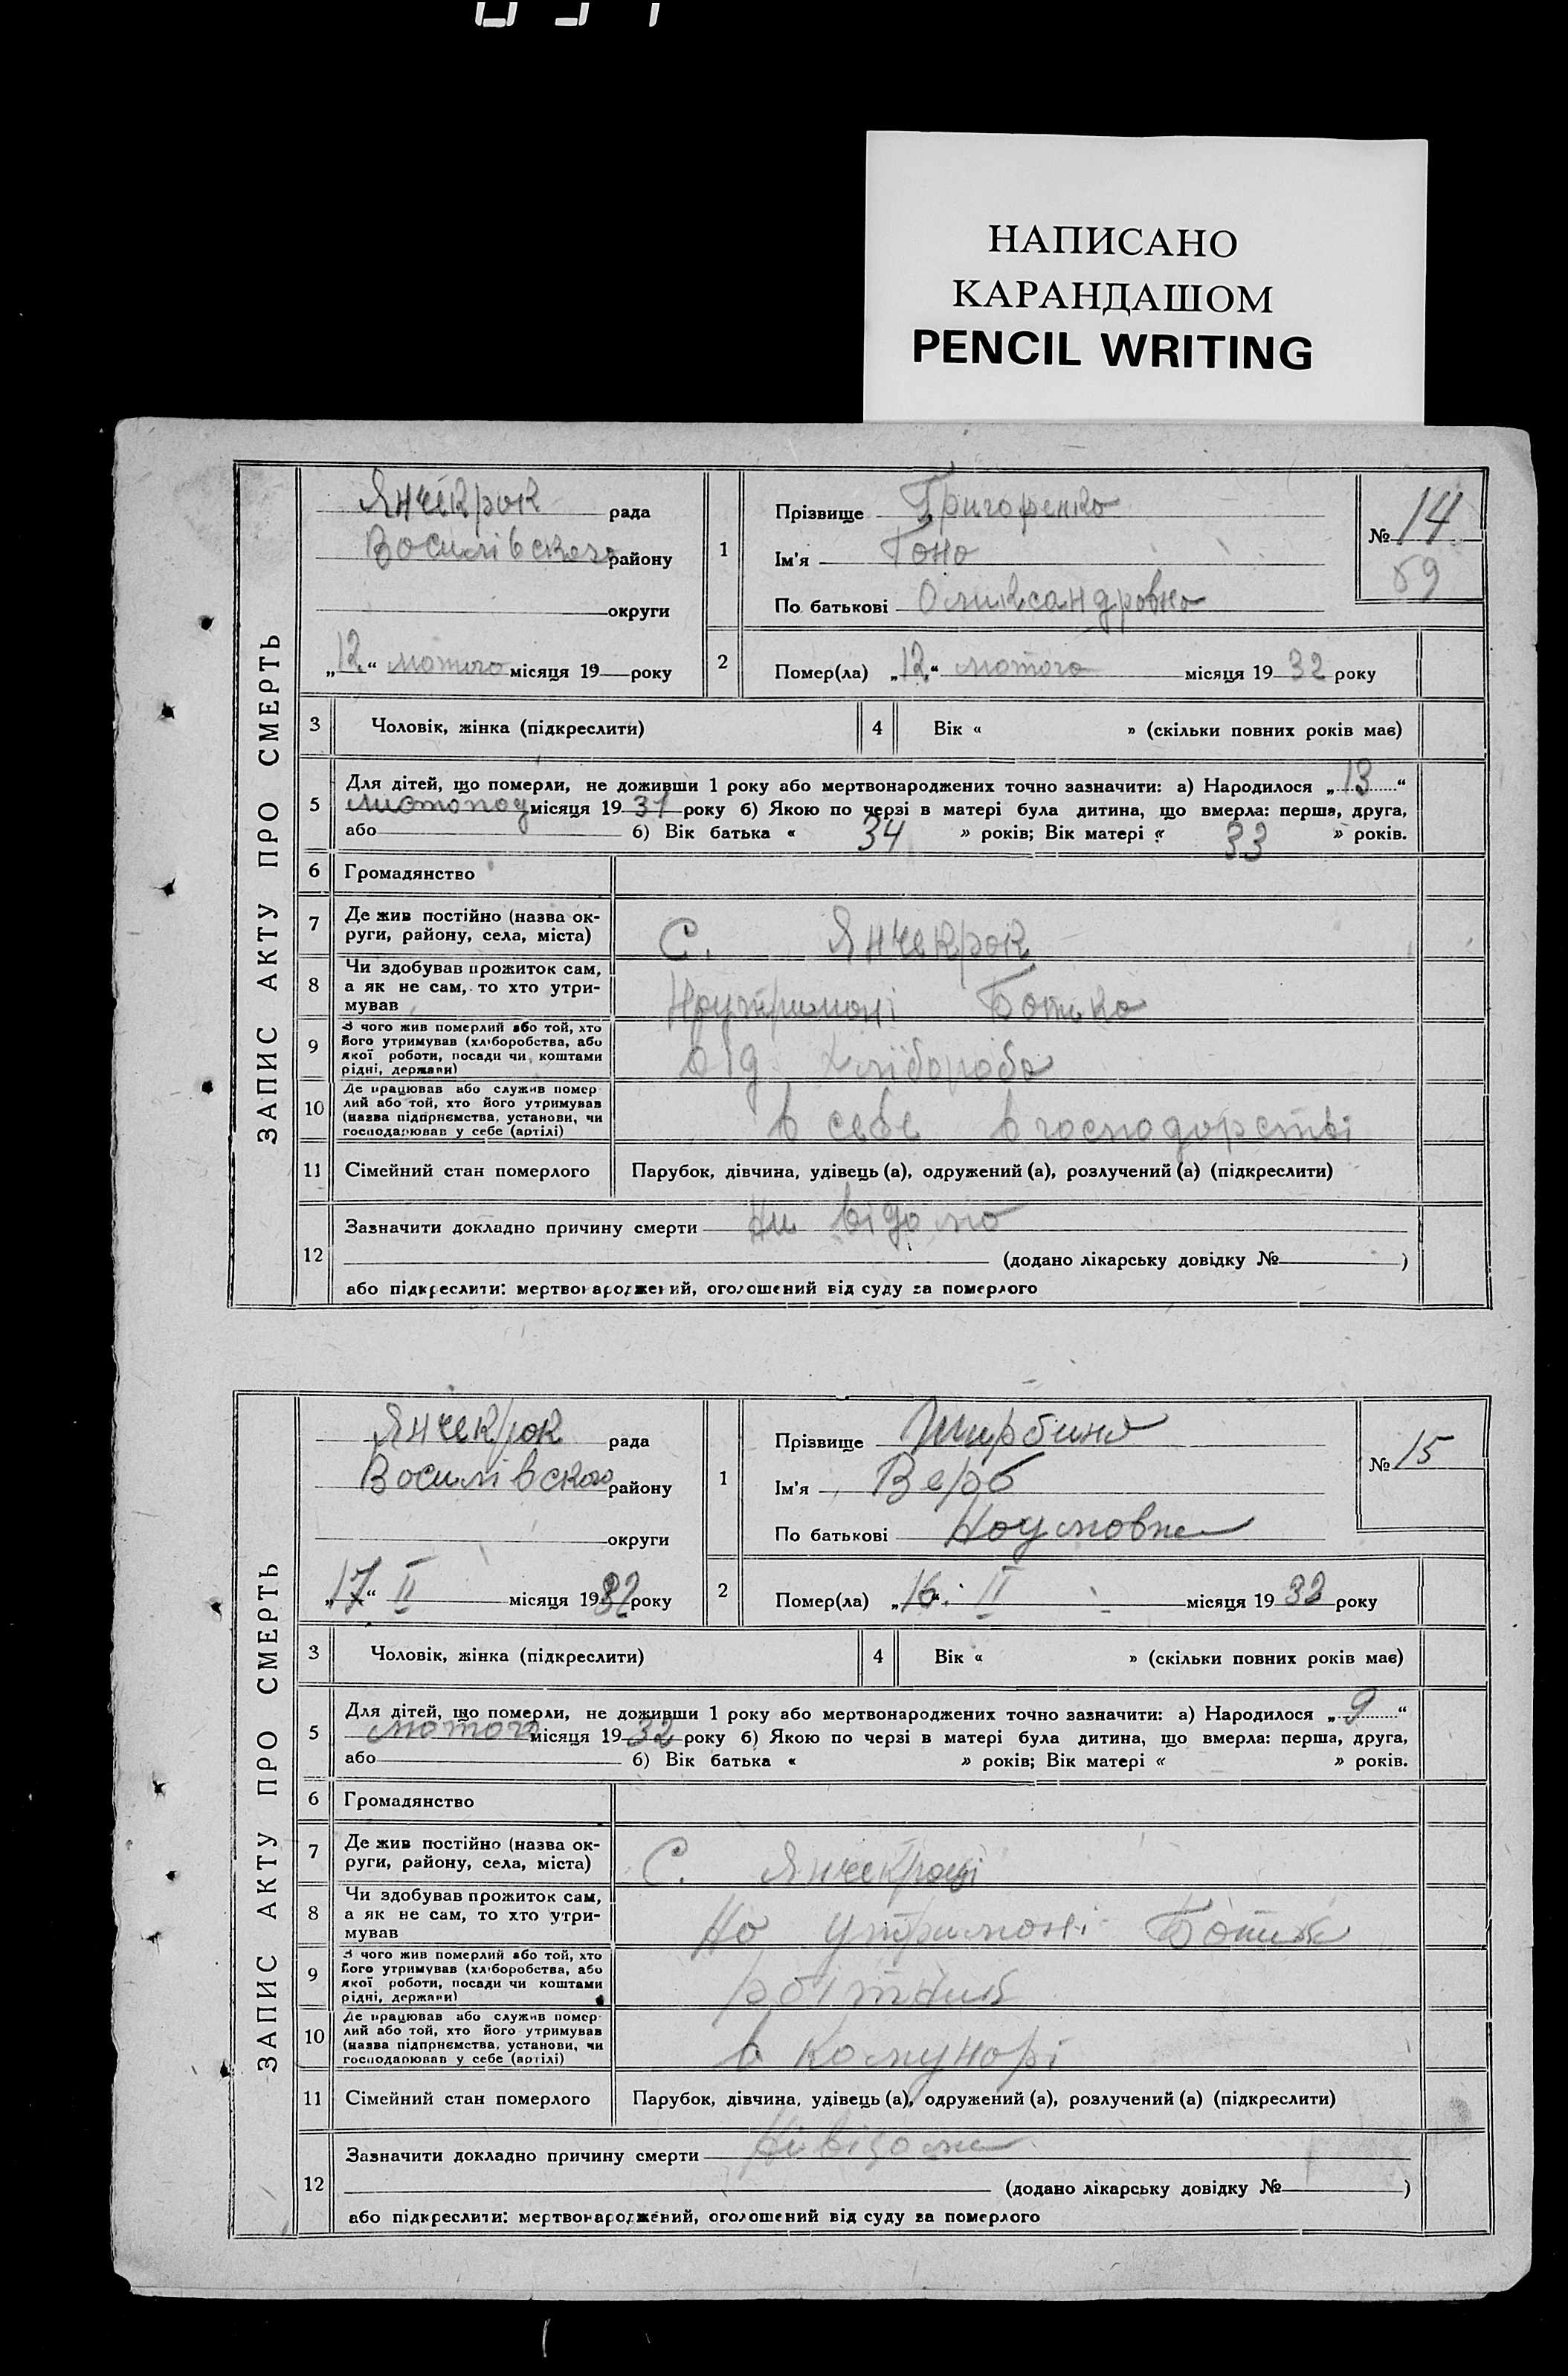 НАПИСАНО
КАРАНДАШОМ
PENCIL WRITING
ЗАПИС АКТУ ПРО СМЕРТЬ
Янчекрок рада
Восилівского району
округи
„12“ лютого місяця 19 року
1
Прізвище Григоренко
Ім'я Гоно
По батькові Оликсандровно
№ 14
59
2
Помер(ла) „12“ лютого місяця 1932 року
3 Чоловік, жінка (підкреслити)
4 Вік « » (скільки повних років має)
5 Для дітей, що померли, не доживши 1 року або мертвонароджених точно зазначити: а) Народилося „13“
листопад місяця 1931 року б) Якою по черзі в матері була дитина, що вмерла: перша, друга,
або б) Вік батька « 34 » років; Вік матері « 33 » років.
6 Громадянство
7 Де жив постійно (назва ок-
руги, району, села, міста)
С. Янчекрок
8 Чи здобував прожиток сам,
а як не сам, то хто утри-
мував
Ноутримоні Ботько
9 З чого жив померлий або той, хто
його утримував (хліборобства, або
якої роботи, посади чи коштами
рідні, держави)
од хлібороба
10 Де працював або служив помер
лий або той, хто його утримував
(назва підприємства, установи, чи
господарював у себе (артілі)
в себе в господорстві
11 Сімейний стан померлого Парубок, дівчина, удівець (а), одружений (а), розлучений (а) (підкреслити)
12 Зазначити докладно причину смерти Ни відомо
(додано лікарську довідку № )
або підкреслити: мертвонароджений, оголошений від суду за померлого
ЗАПИС АКТУ ПРО СМЕРТЬ
Янчекрок рада
Восилівского району
округи
„17“ II місяця 1932 року
1
Прізвище Щирбино
Ім'я Вера
По батькові Ноумовна
№ 15
2
Помер(ла) „16“ II місяця 1932 року
3 Чоловік, жінка (підкреслити)
4 Вік « » (скільки повних років має)
5 Для дітей, що померли, не доживши 1 року або мертвонароджених точно зазначити: а) Народилося „9“
лютого місяця 1932 року б) Якою по черзі в матері була дитина, що вмерла: перша, друга,
або б) Вік батька « » років; Вік матері « » років.
6 Громадянство
7 Де жив постійно (назва ок-
руги, району, села, міста)
С. Янчекроці
8 Чи здобував прожиток сам,
а як не сам, то хто утри-
мував
Но утримоні Ботька
9 З чого жив померлий або той, хто
його утримував (хліборобства, або
якої роботи, посади чи коштами
рідні, держави)
робітник
10 Де працював або служив помер
лий або той, хто його утримував
(назва підприємства, установи, чи
господарював у себе (артілі)
в комунорі
11 Сімейний стан померлого Парубок, дівчина, удівець (а), одружений (а), розлучений (а) (підкреслити)
12 Зазначити докладно причину смерти Нивідома
(додано лікарську довідку № )
або підкреслити: мертвонароджений, оголошений від суду за померлого